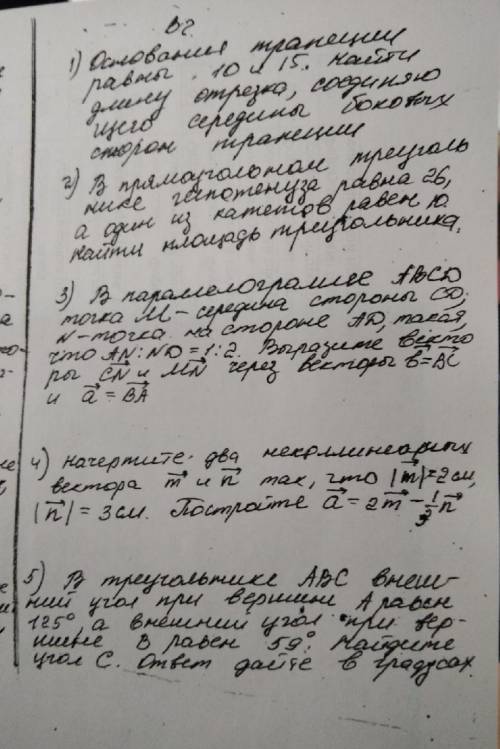 В2
1) Основания трапеции
равны 10 и 15. Найти
длину отрезка, соединяю
щего середины боковых
сторон трапеции
2) В прямоугольном треуголь
нике гипотенуза равна 26,
а один из катетов равен 10
Найти площадь треугольника.
3) В параллелограмме ABCD
точка M - середина стороны CD;
N - точка на стороне AD, такая,
что AN:ND = 1:2. Выразите векто
ры CN и MN через векторы b = BC
и a = BA
4) Начертите два неколлинеарных
вектора m и n так, что |m| = 2 см,
|n| = 3 см. Постройте a = 2m - n
5) В треугольнике ABC внеш-
ний угол при вершине A равен
125°, а внешний угол при вер-
шине B равен 59°. Найдите
угол C. Ответ дайте в градусах.